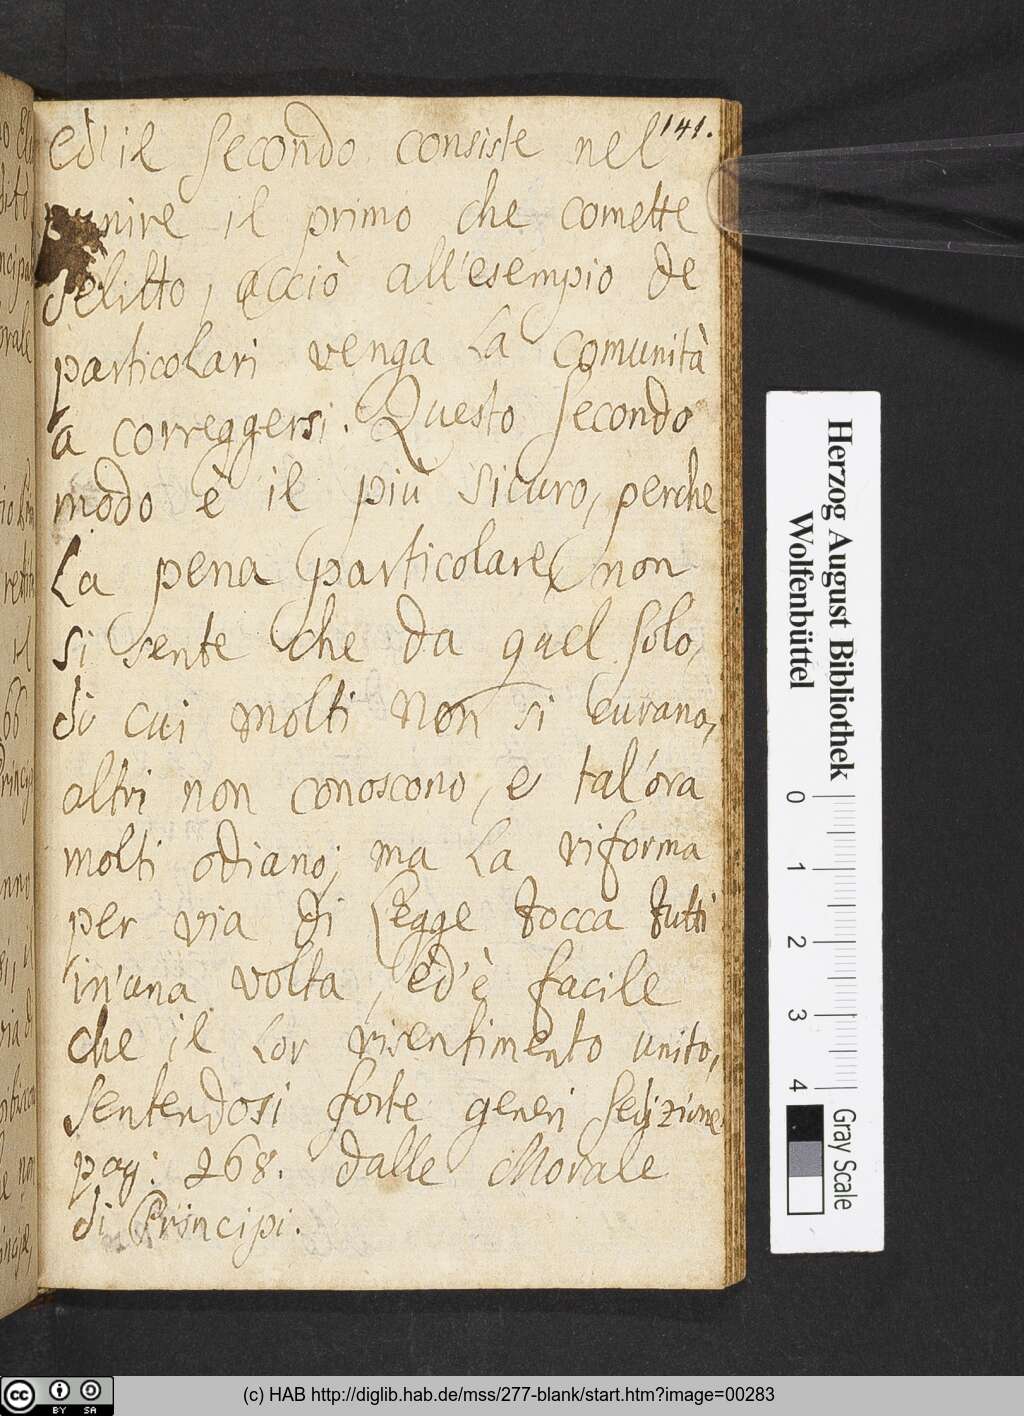 141.
ed' il secondo consiste nel
punire il primo che comette
delitto, acciò all'esempio de
particolari venga la comunità
a correggersi. Questo secondo
modo è il più sicuro, perche
La pena particolare, non
si sente che da quel solo,
di cui molti non si curano,
altri non conoscono, e tal'ora
molti odiano; ma la riforma
per via di Legge tocca tutti
in'una volta, ed'è facile
che il lor risentimento unito,
sentendosi forte generi sedizione
pag: 268. dalle Morale
di Principi.
Herzog August Bibliothek
Wolfenbüttel
0 1 2 3 4
Gray Scale
cc BY SA
(c) HAB http://diglib.hab.de/mss/277-blank/start.htm?image=00283